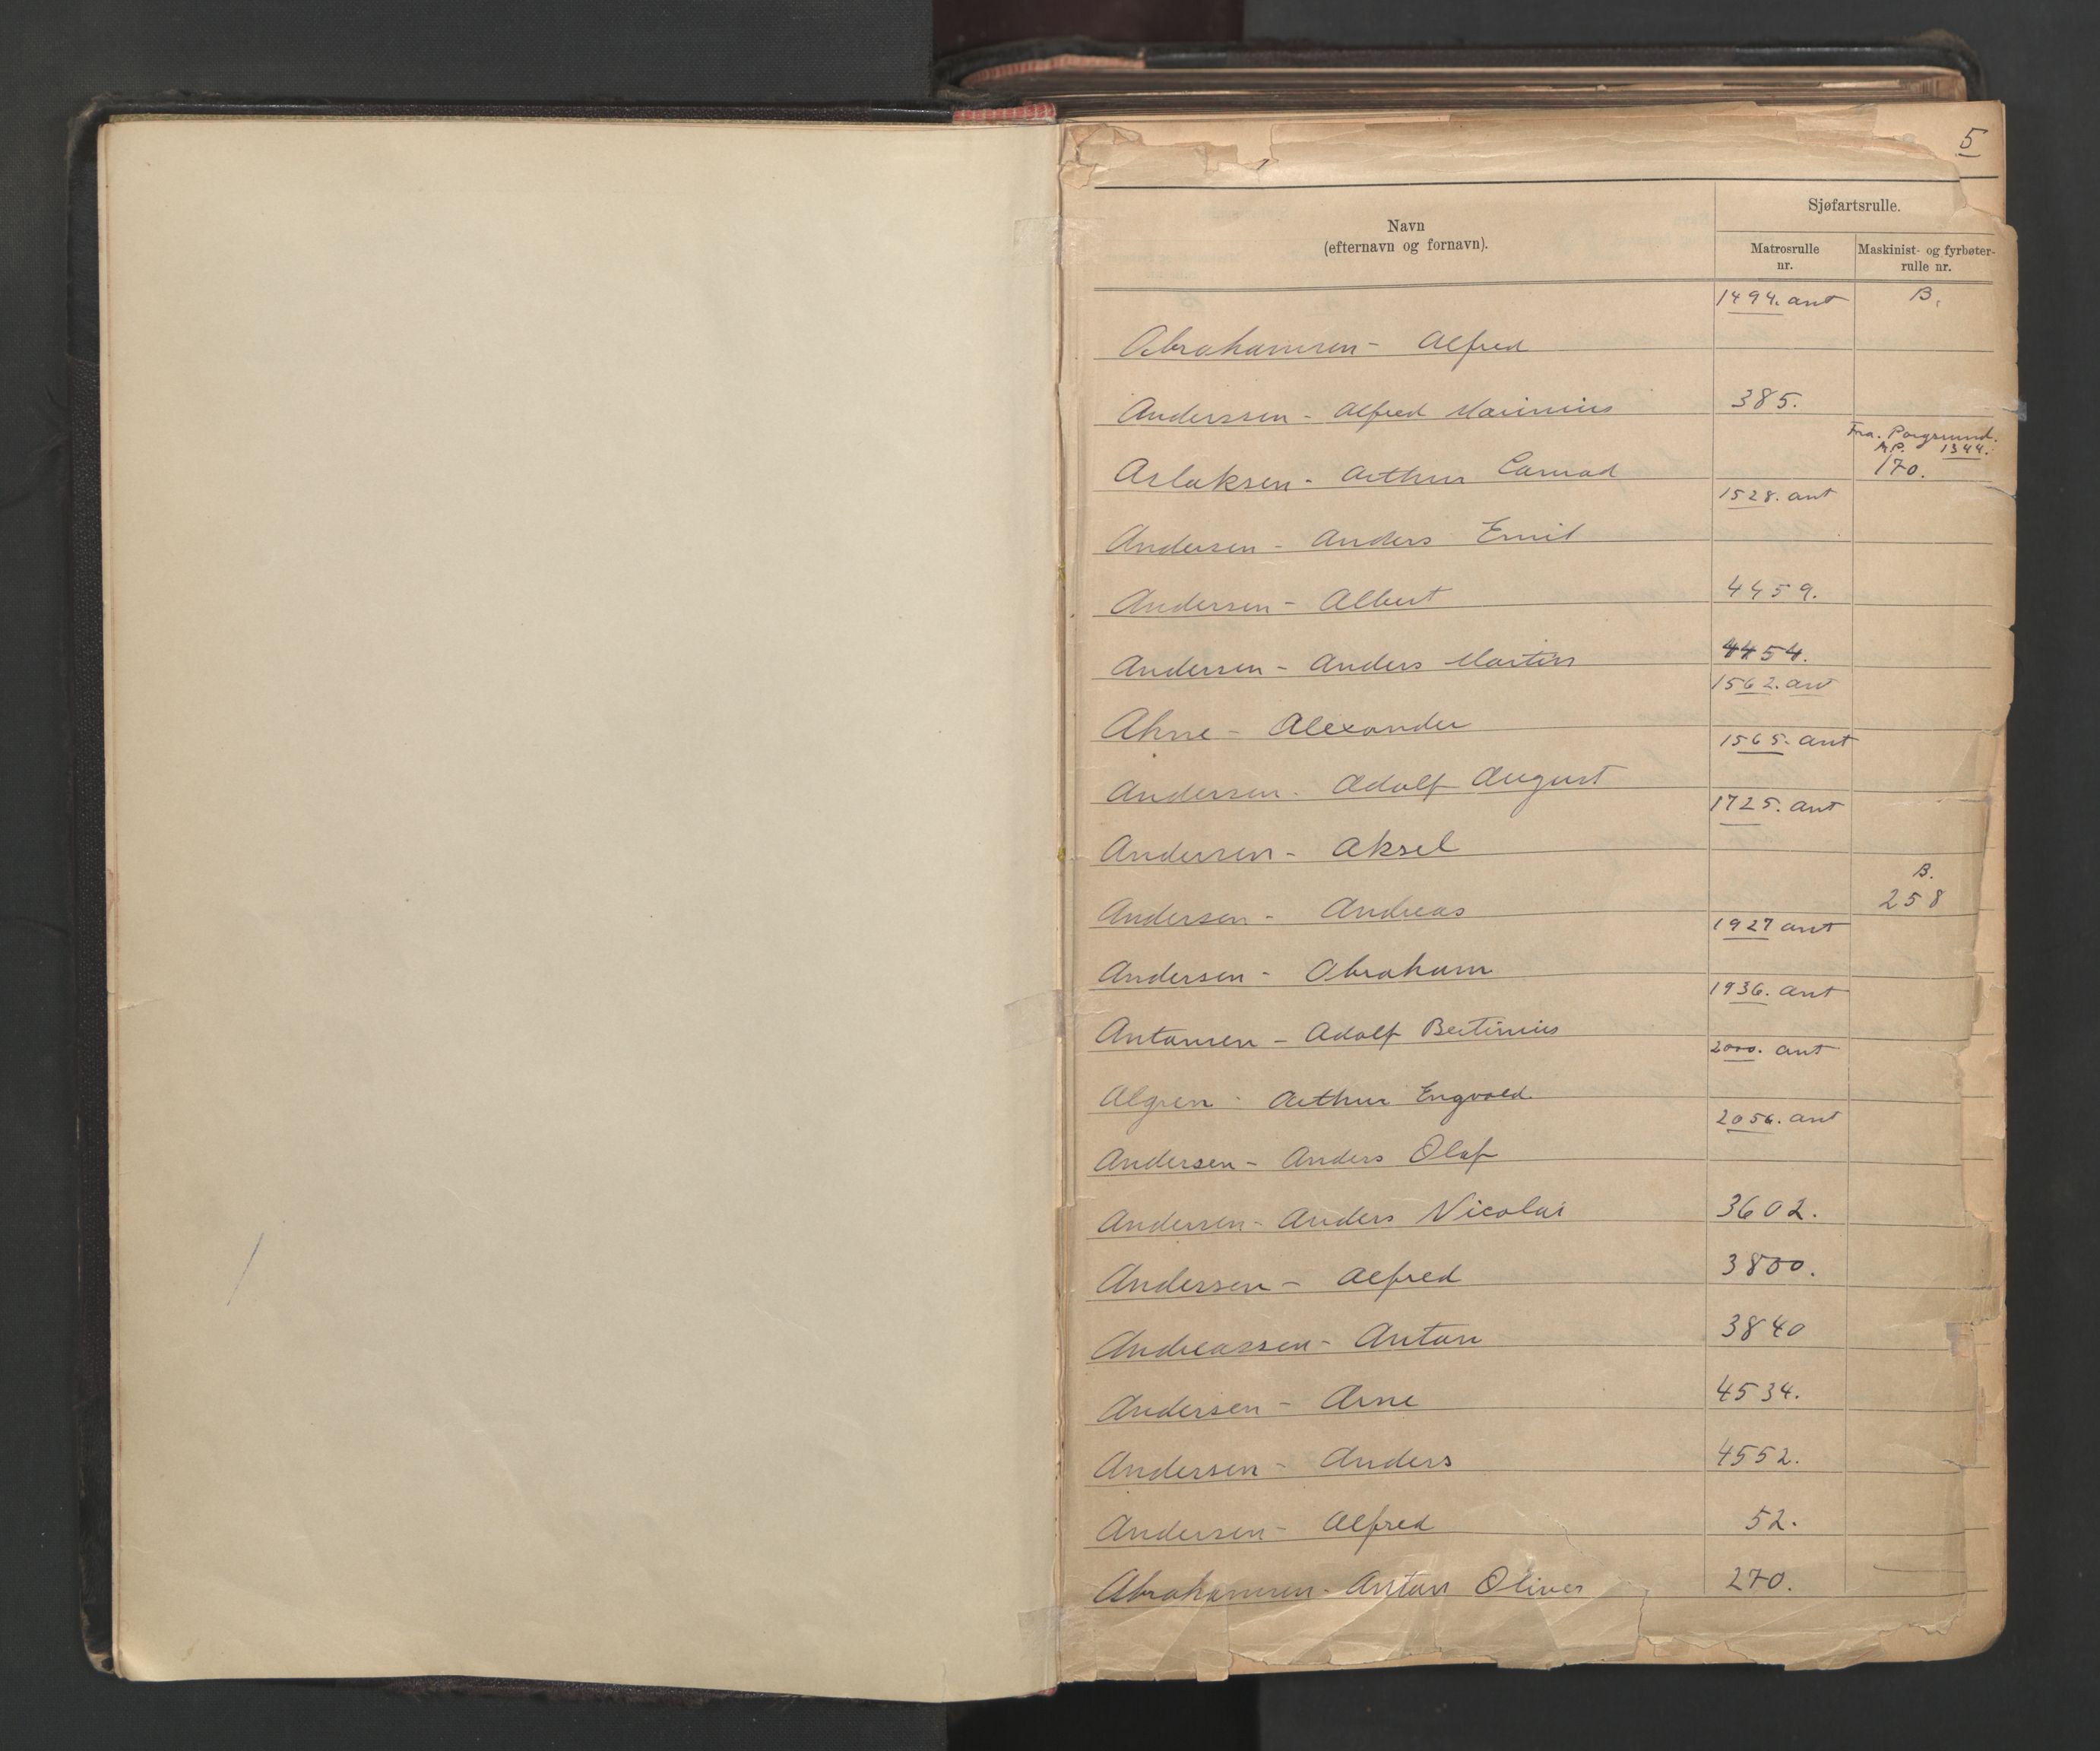 5
Sjøfartsrulle.
Navn
(efternavn og fornavn).
Matrosrulle
nr.
Maskinist- og fyrbøter-
rulle nr.
1494. ant B.
Abrahamsen - Alfred
Anderssen - Alfred Marinius 385.
Fra. Porgsrund.
A.P. 1344.
Aslaksen - Arthur Conrad 170.
1528. ant
Andersen - Anders Emil
Andersen - Albert 4459.
Andersen - Anders Martin 4454.
1562. ant
Ahne - Alexander
1565. ant
Andersen - Adolf August
1725. ant
Andersen - Aksel
B.
Andersen - Andreas 258
1927 ant
Andersen - Abraham
1936. ant
Antonsen - Adolf Bertinius
2000. ant
Algren - Arthur Engvald
2056. ant
Andersen - Anders Olaf
Andersen - Anders Nicolai 3602.
Andersen - Alfred 3800.
Andreassen - Anton 3840
Andersen - Arne 4534.
Andersen - Anders 4552.
Andersen - Alfred 52.
Abrahamsen - Anton Oliver 270.